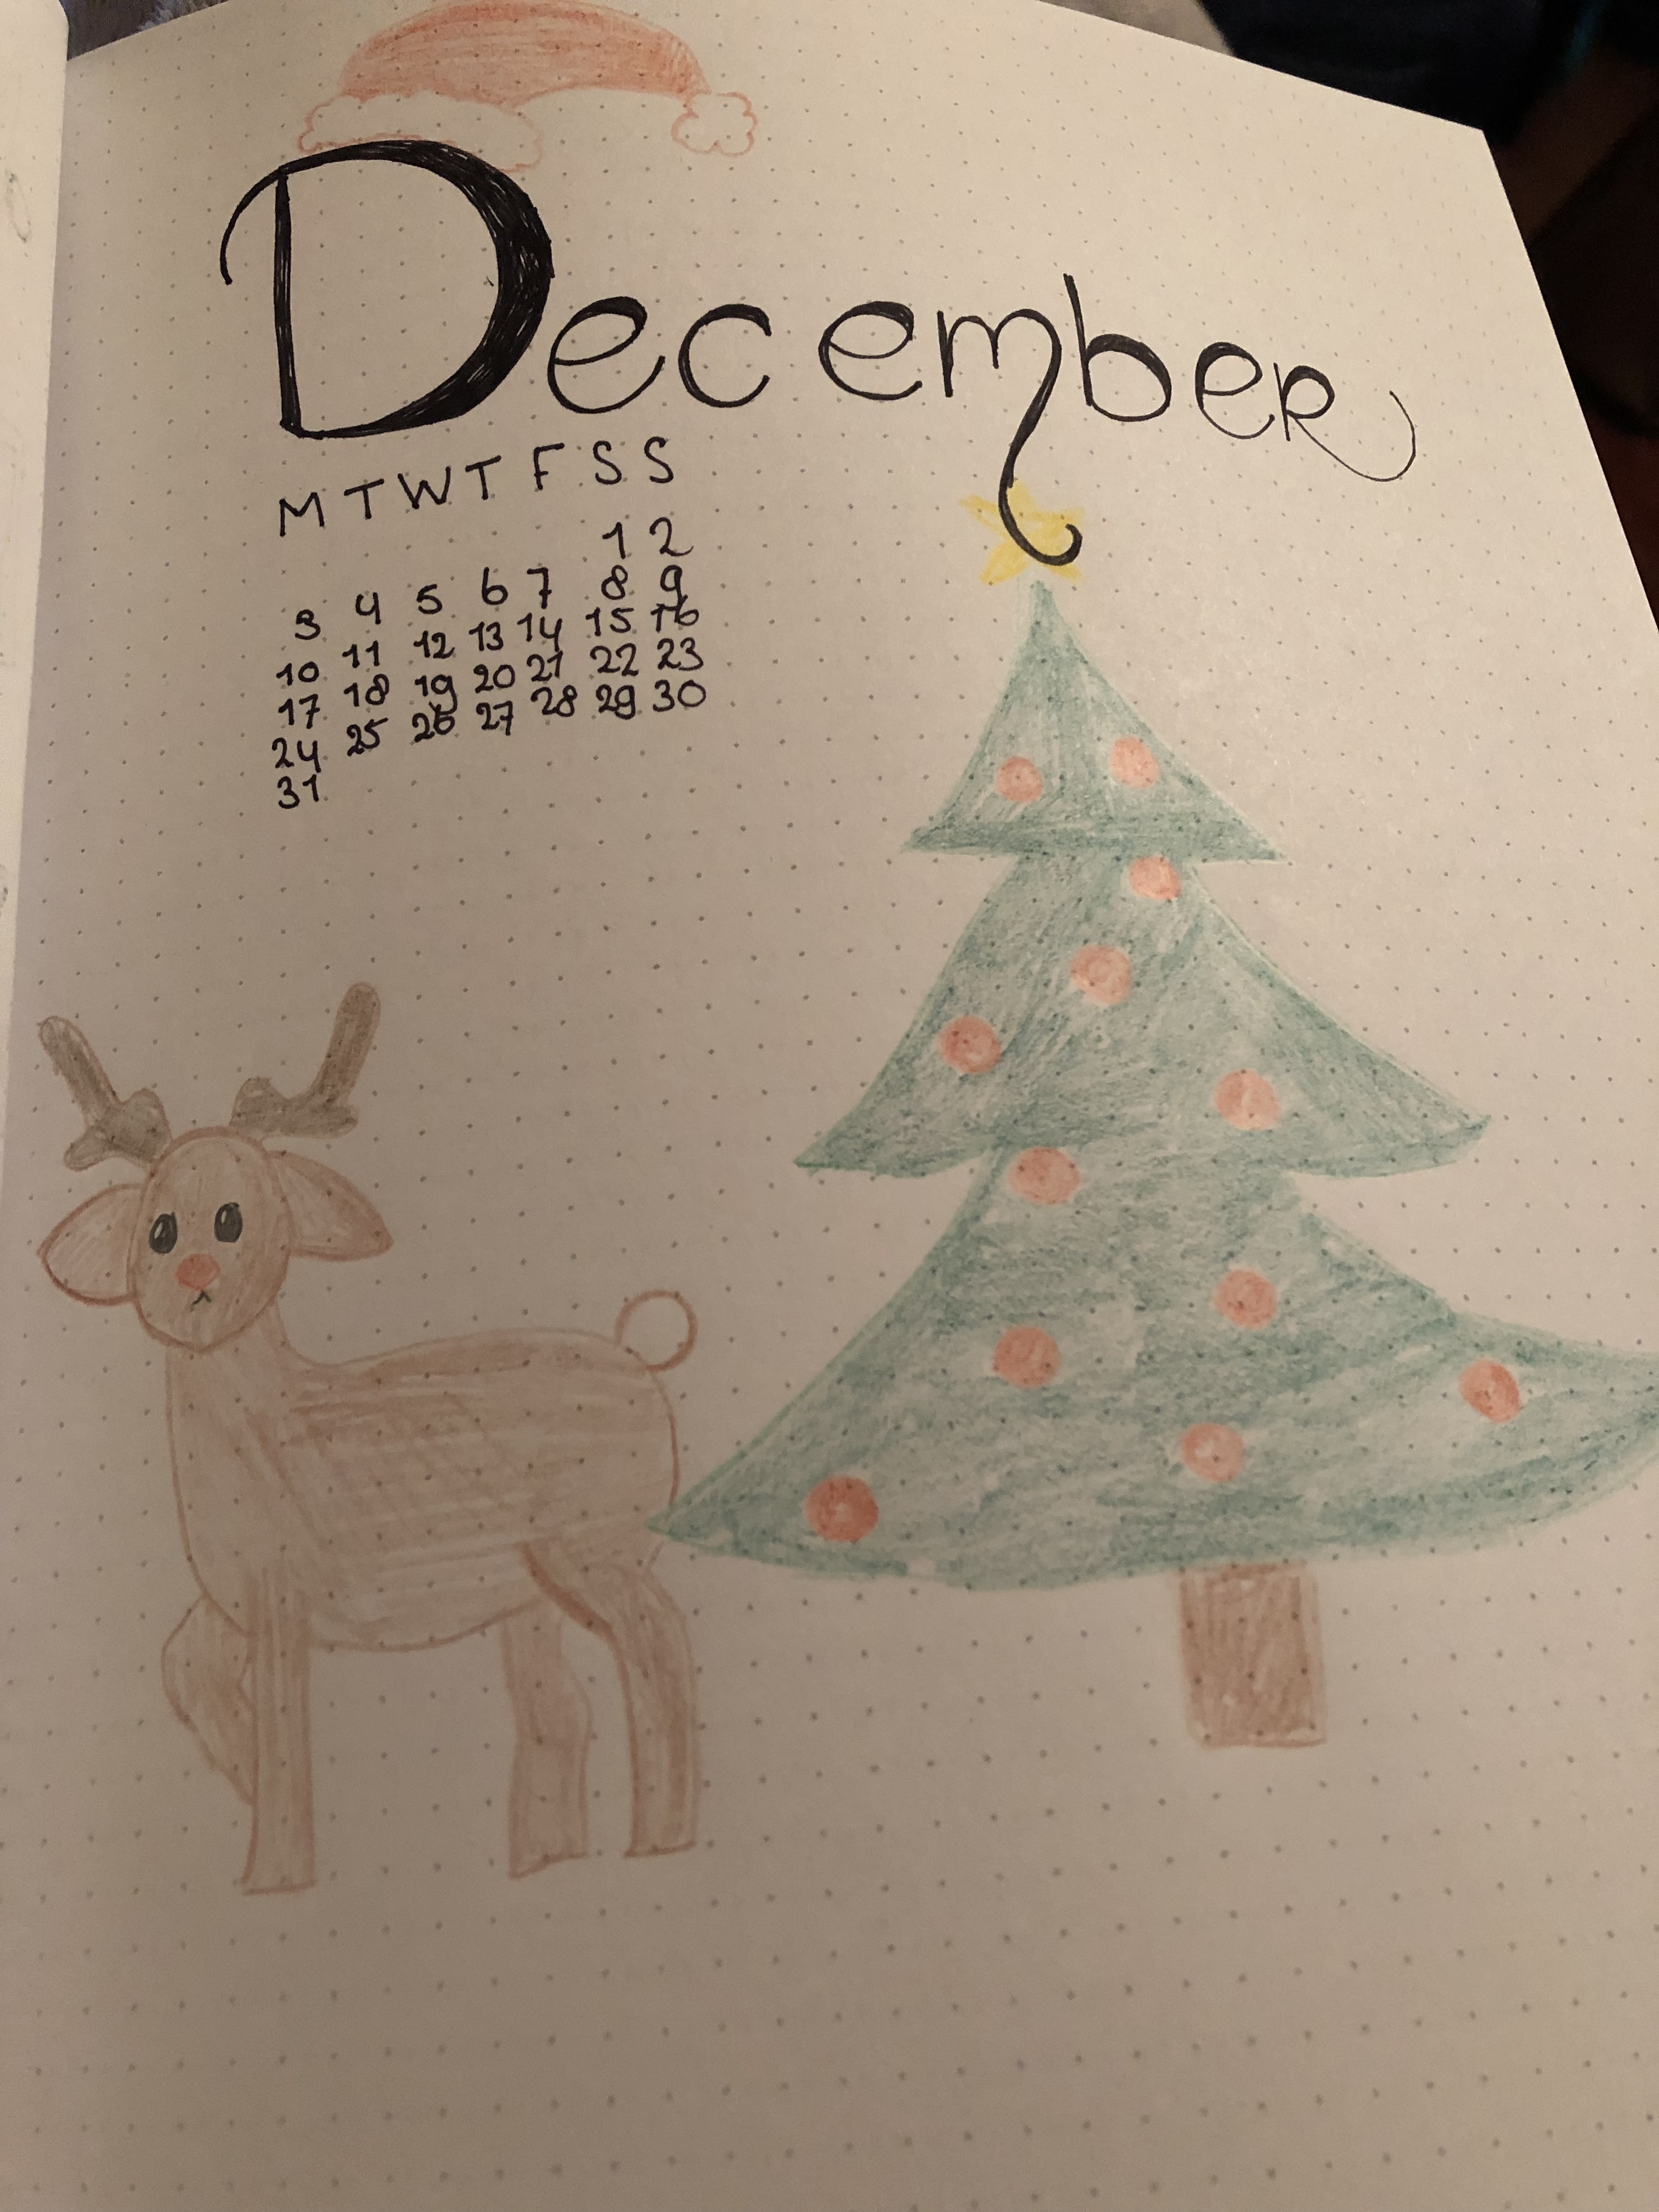 December
M T W T F S S
1 2
3 4 5 6 7 8 9
10 11 12 13 14 15 16
17 18 19 20 21 22 23
24 25 26 27 28 29 30
31